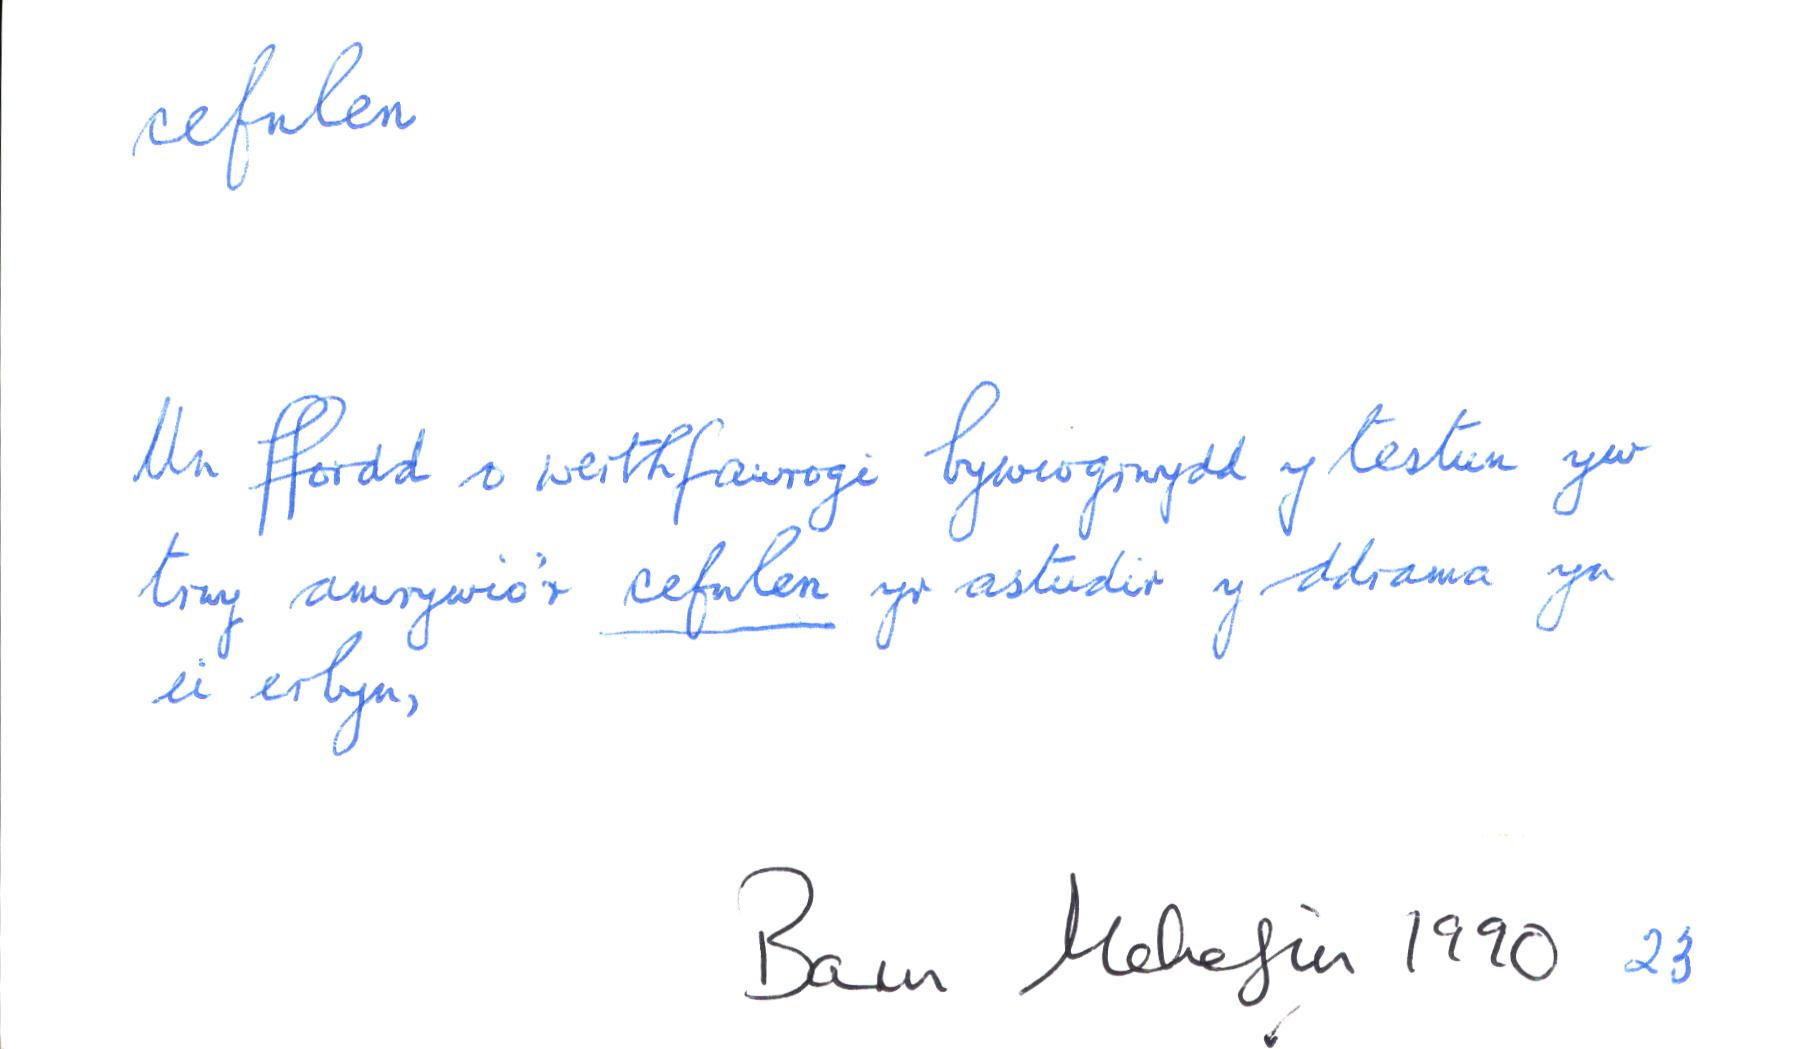 cefnlen
Un ffordd o werthfawrogi bywiogrwydd y testun yw
trwy amrywio'r cefnlen yr astudir y ddrama yn
ei erbyn,
Barn Mehefin 1990 23